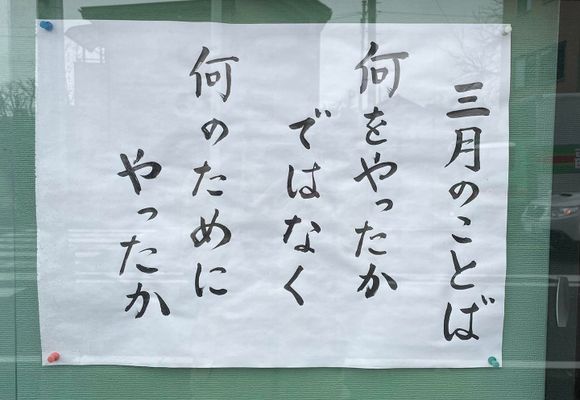 三月のことば
何をやったか
ではなく
何のために
やったか